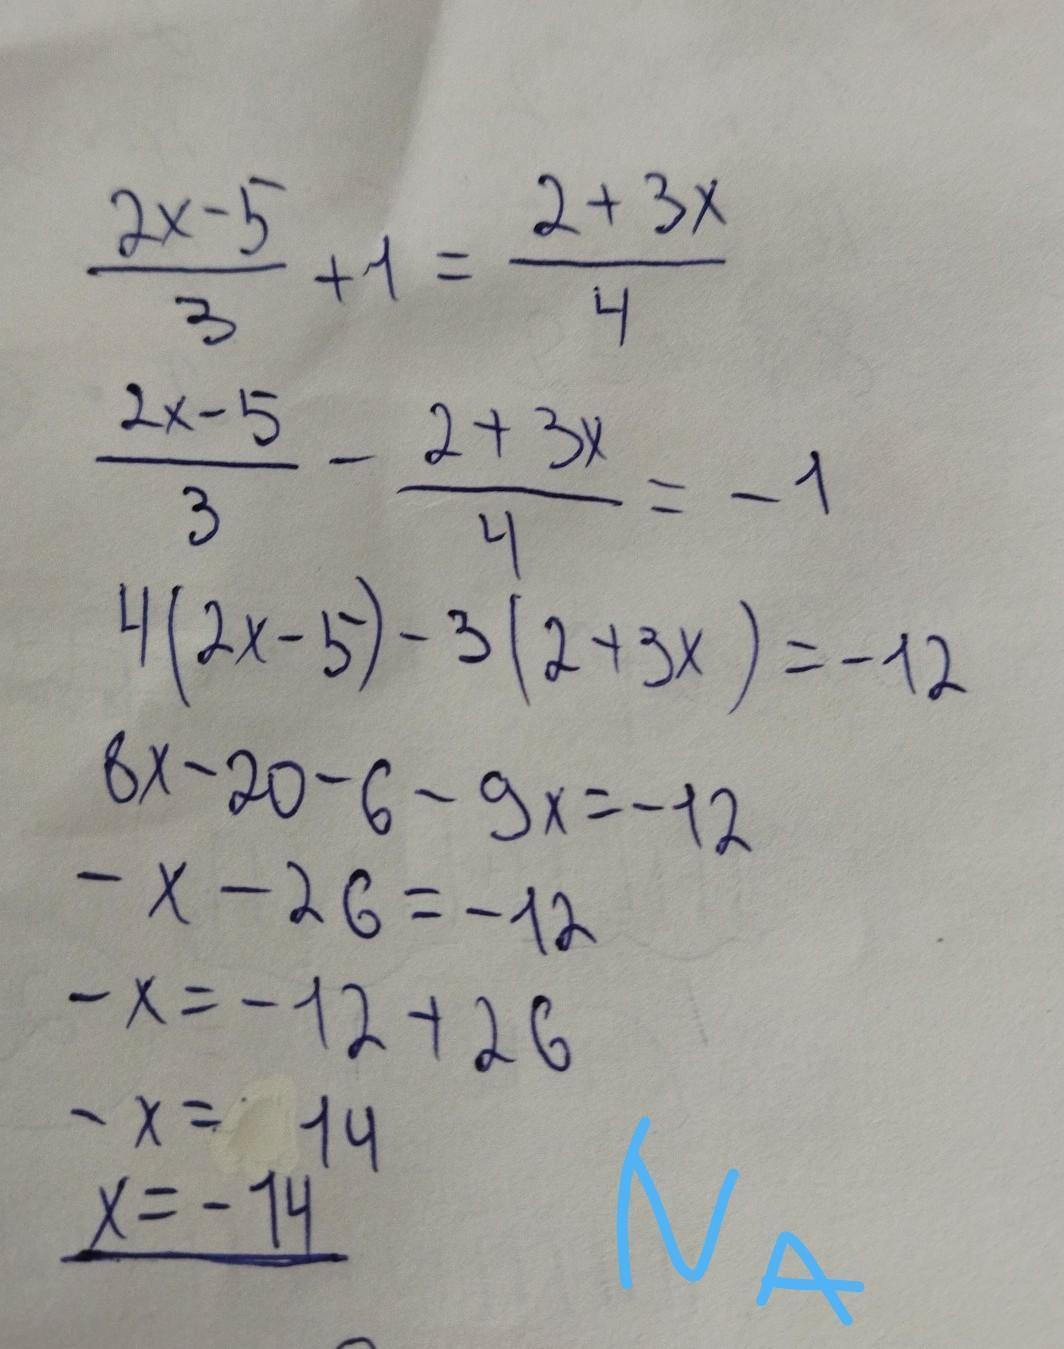 (2x-5)/3 + 1 = (2+3x)/4
(2x-5)/3 - (2+3x)/4 = -1
4(2x-5)-3(2+3x)=-12
8x-20-6-9x=-12
-x-26=-12
-x=-12+26
-x= 14
x=-14
NA